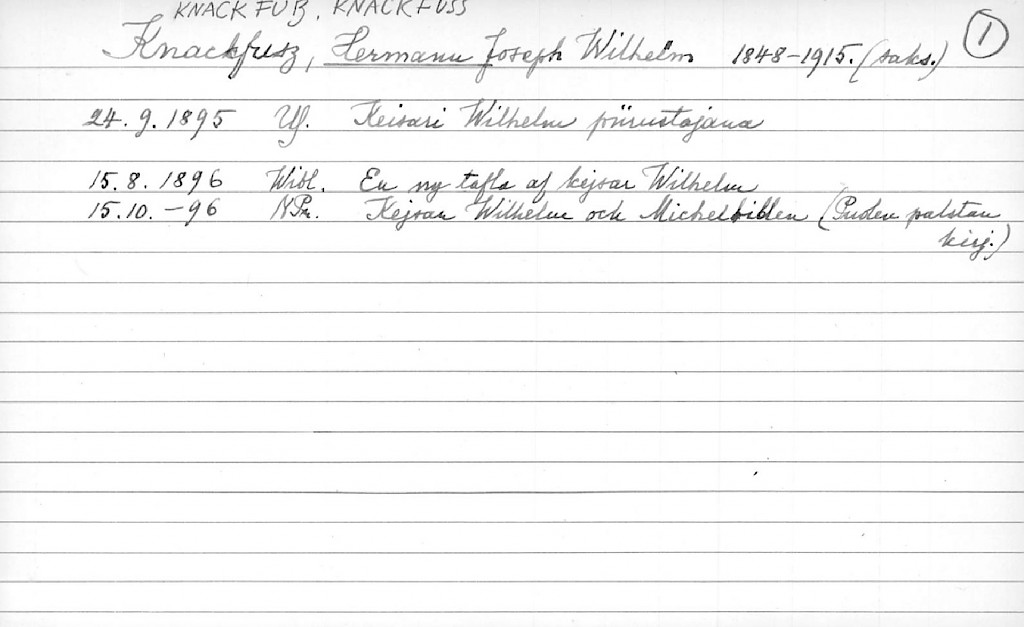 KNACKFUß, KNACKFUSS
Knackfusz, Hermann Joseph Wilhelm 1848-1915. (saks.) 1
24. 9. 1895 Uf. Keisari Wilhelm piirustajana
15. 8. 1896 Wibl. En ny tafla af kejsar Wilhelm
15. 10. -96 NPr. Kejsar Wilhelm och Michelbilden (Puden palstan
kirj.)